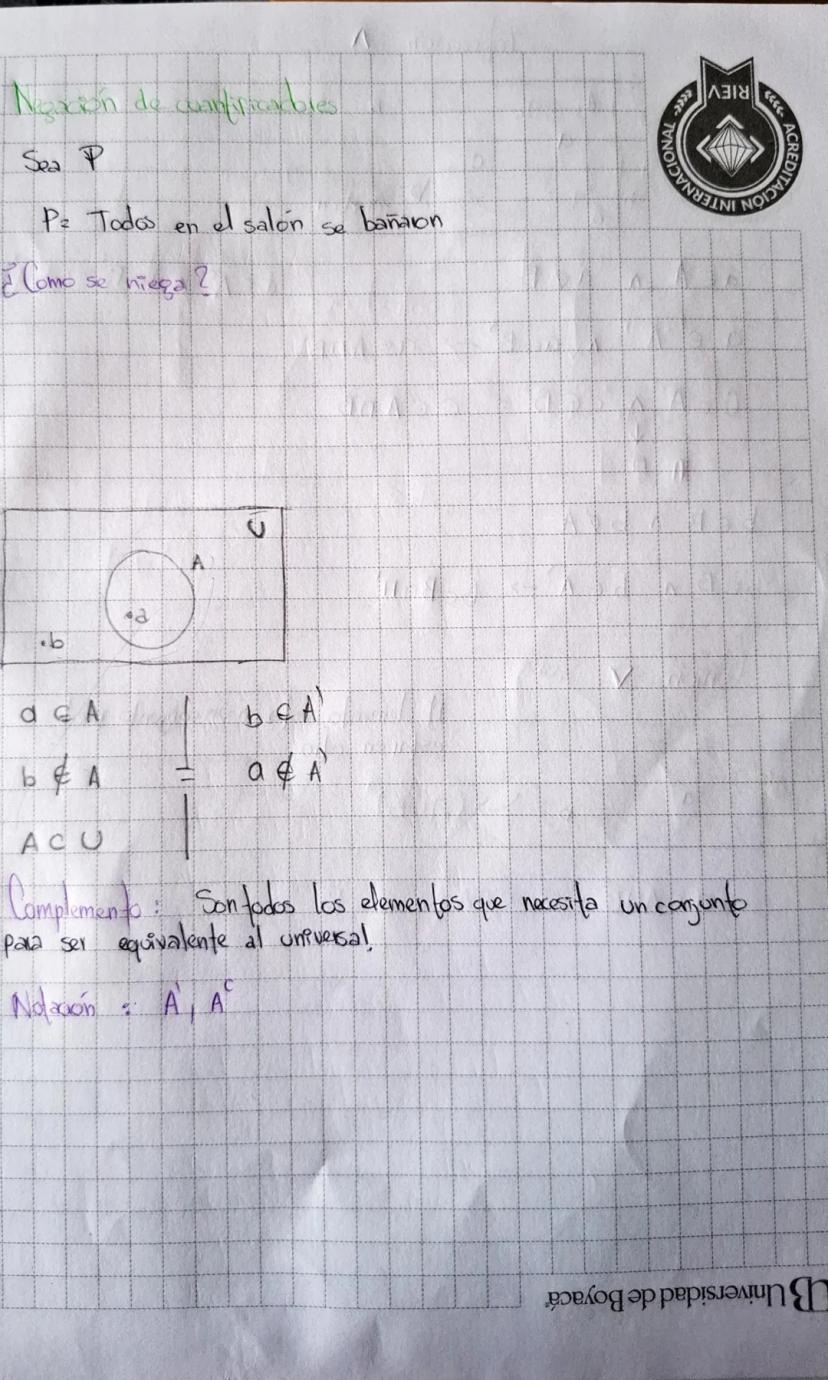 Negación de cuantificadores
Sea P
P= Todos en el salón se bañaron
¿Como se niega?
U
A
.a
.b
a ∈ A | b ∈ A'
b ∉ A = a ∉ A'
A ⊂ U
Complemento: Son todos los elementos que necesita un conjunto
para ser equivalente al universal.
Notación: A', Aᶜ
RIEV
ACREDITACIÓN INTERNACIONAL
UB Universidad de Boyacá